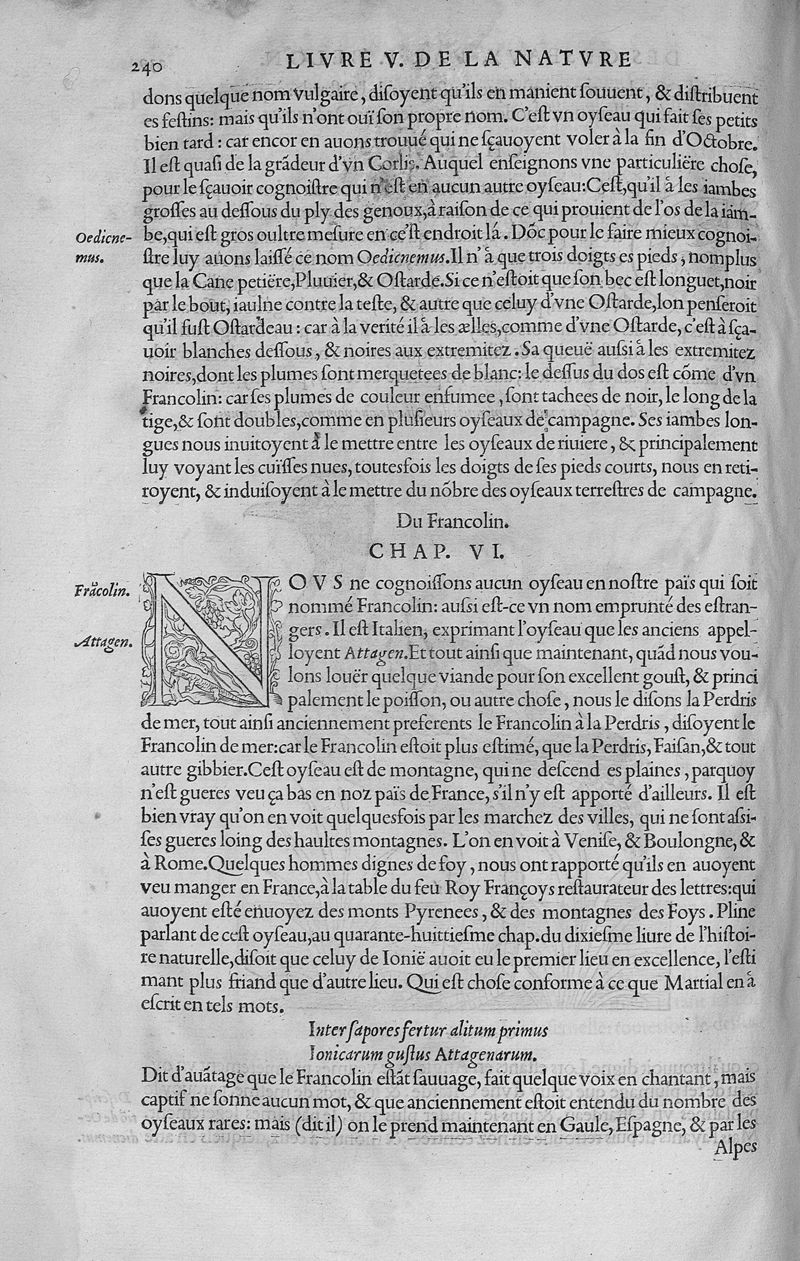 240
LIVRE V. DE LA NATVRE
dons quelque nom vulgaire, disoyent qu'ils en manient souuent, & distribuent
es festins: mais qu'ils n'ont ouï son propre nom. C'est vn oyseau qui fait ses petits
bien tard: car encor en auons trouué qui ne sçauoyent voler à la fin d'Octobre.
Il est quasi de la grãdeur d'vn Corlis. Auquel enseignons vne particuliëre chose,
pour le sçauoir cognoistre qui n'est en aucun autre oyseau: Cest, qu'il à les iambes
grosses au dessous du ply des genoux, à raison de ce qui prouient de l'os de la iam-
Oedicne-
mus.
be, qui est gros oultre mesure en ce'st endroit lá. Dõc pour le faire mieux cognoi-
stre luy auons laissé ce nom Oedicnemus. Il n'à que trois doigts es pieds, nomplus
que la Cane petiëre, Pluuier, & Ostarde. Si ce n'estoit que son bec est longuet, noir
par le bout, iaulne contre la teste, & autre que celuy d'vne Ostarde, lon penseroit
qu'il fust Ostardeau: car à la verité il à les ælles, comme d'vne Ostarde, c'est à sça-
uoir blanches dessous, & noires aux extremitez. Sa queuë aussi à les extremitez
noires, dont les plumes sont merquetees de blanc: le dessus du dos est cõme d'vn
Francolin: car ses plumes de couleur enfumee, sont tachees de noir, le long de la
tige, & sont doubles, comme en plusieurs oyseaux de campagne. Ses iambes lon-
gues nous inuitoyent à le mettre entre les oyseaux de riuiere, & principalement
luy voyant les cuïsses nues, toutesfois les doigts de ses pieds courts, nous en reti-
royent, & induisoyent à le mettre du nõbre des oyseaux terrestres de campagne.
Du Francolin.
CHAP. VI.
Frãcolin.
NOVS ne cognoissons aucun oyseau en nostre païs qui soit
nommé Francolin: aussi est-ce vn nom emprunté des estran-
Attagen.
gers. Il est Italien, exprimant l'oyseau que les anciens appel-
loyent Attagen. Et tout ainsi que maintenant, quãd nous vou-
lons louër quelque viande pour son excellent goust, & princi
palement le poisson, ou autre chose, nous le disons la Perdris
de mer, tout ainsi anciennement preferents le Francolin à la Perdris, disoyent le
Francolin de mer: car le Francolin estoit plus estimé, que la Perdris, Faisan, & tout
autre gibbier. Cest oyseau est de montagne, qui ne descend es plaines, parquoy
n'est gueres veu ça bas en noz païs de France, s'il n'y est apporté d'ailleurs. Il est
bien vray qu'on en voit quelquesfois par les marchez des villes, qui ne sont assi-
ses gueres loing des haultes montagnes. L'on en voit à Venise, & Boulongne, &
à Rome. Quelques hommes dignes de foy, nous ont rapporté qu'ils en auoyent
veu manger en France, à la table du feu Roy Françoys restaurateur des lettres: qui
auoyent esté enuoyez des monts Pyrenees, & des montagnes des Foys. Pline
parlant de cest oyseau, au quarante-huittiesme chap. du dixiesme liure de l'histoi-
re naturelle, disoit que celuy de Ionië auoit eu le premier lieu en excellence, l'esti
mant plus friand que d'autre lieu. Qui est chose conforme à ce que Martial en à
escrit en tels mots.
Inter sapores fertur alitum primus
Ionicarum gustus Attagenarum.
Dit d'auãtage que le Francolin estãt sauuage, fait quelque voix en chantant, mais
captif ne sonne aucun mot, & que anciennement estoit entendu du nombre des
oyseaux rares: mais (dit il) on le prend maintenant en Gaule, Espagne, & par les
Alpes